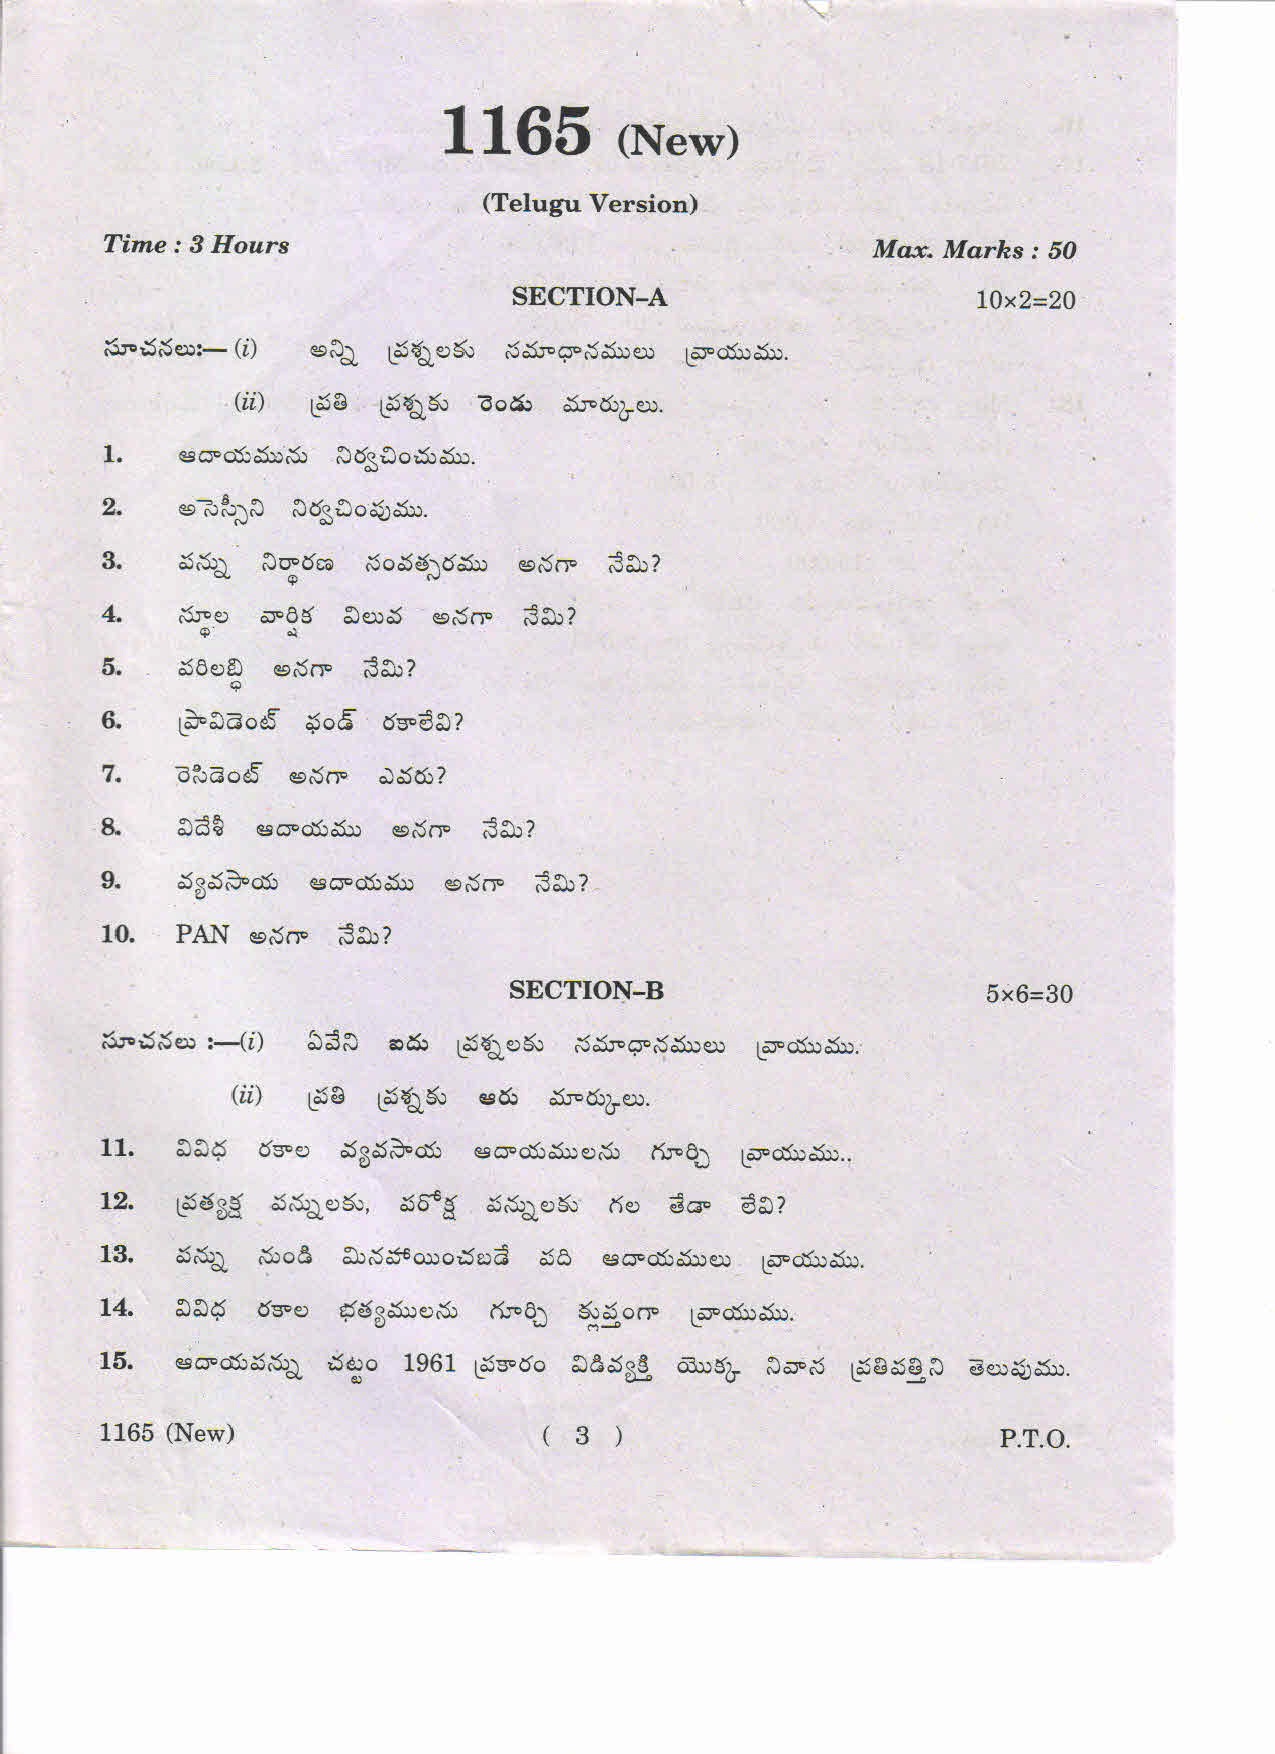 1165 (New)
(Telugu Version)
Time : 3 Hours Max. Marks : 50
SECTION–A 10×2=20
సూచనలుః— (i) అన్ని ప్రశ్నలకు సమాధానములు వ్రాయుము.
(ii) ప్రతి ప్రశ్నకు రెండు మార్కులు.
1. ఆదాయమును నిర్వచించుము.
2. అసెస్సీని నిర్వచింపుము.
3. పన్ను నిర్థారణ సంవత్సరము అనగా నేమి?
4. స్థూల వార్షిక విలువ అనగా నేమి?
5. పరిలబ్ధి అనగా నేమి?
6. ప్రావిడెంట్ ఫండ్ రకాలేవి?
7. రెసిడెంట్ అనగా ఎవరు?
8. విదేశీ ఆదాయము అనగా నేమి?
9. వ్యవసాయ ఆదాయము అనగా నేమి?
10. PAN అనగా నేమి?
SECTION–B 5×6=30
సూచనలు :—(i) ఏవేని ఐదు ప్రశ్నలకు సమాధానములు వ్రాయుము.
(ii) ప్రతి ప్రశ్నకు ఆరు మార్కులు.
11. వివిధ రకాల వ్యవసాయ ఆదాయములను గూర్చి వ్రాయుము..
12. ప్రత్యక్ష పన్నులకు, పరోక్ష పన్నులకు గల తేడా లేవి?
13. పన్ను నుండి మినహాయించబడే పది ఆదాయములు వ్రాయుము.
14. వివిధ రకాల భత్యములను గూర్చి క్లుప్తంగా వ్రాయుము.
15. ఆదాయపన్ను చట్టం 1961 ప్రకారం విడివ్యక్తి యొక్క నివాస ప్రతిపత్తిని తెలుపుము.
1165 (New) ( 3 ) P.T.O.